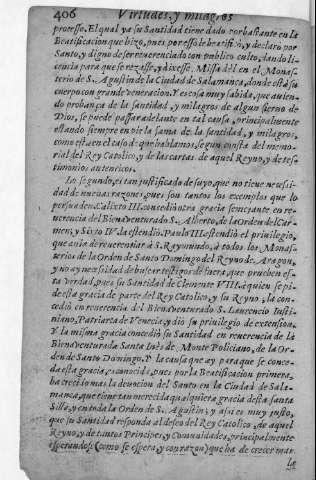 406 Virtudes, y milagros
processo. El qual ya su Santidad tiene dado por bastante en la
Beatificacion que hizo, pues por esso le beatificò, y declarò por
Santo, y digno de ser reverenciado con publico culto, dando li-
cencia para que se rezasse, y dixesse Missa dèl en el Monas-
terio de S. Agustin de la Ciudad de Salamanca, donde està su
cuerpo con grande veneracion. Y es cosa muy sabida, que avien-
do probança de la santidad, y milagros de algun siervo de
Dios, se puede passar adelante en tal causa, principalmente
estando siempre en pie la fama de la santidad, y milagros,
como està en el caso de que hablamos, segun consta del memo-
rial del Rey Catolico, y de las cartas de aquel Reyno, y de tes-
timonios autenticos.
Lo segundo, es tan justificada de suyo, que no tiene necessi-
dad de nuevas razones, pues son tantos los exemplos que lo
persuaden. Calixto III. concediò otra gracia semejante en re-
verencia del Bienaventurado S. Alberto, de la Orden del Car-
men, y Sixto IV. la estendiò. Paulo III. estendiò el privilegio,
que avia de reverenciar à S. Raymundo, à todos los Monas-
terios de la Orden de Santo Domingo del Reyno de Aragon,
y no ay necessidad de buscar testigos de fuera, que prueben es-
ta verdad, pues su Santidad de Clemente VIII. à quien se pi-
de esta gracia de parte del Rey Catolico, y su Reyno, la con-
cediò en reverencia del Bienaventurado S. Laurencio Justi-
niano, Patriarca de Venecia, y diò su privilegio de extension.
Y la misma gracia concediò su Santidad en reverencia de la
Bienaventurada Santa Inès de Monte Policiano, de la Or-
den de Santo Domingo. Y la causa que ay para que se conce-
da esta gracia, es conocida, pues por la Beatificacion primera,
ha crecido mas la devocion del Santo en la Ciudad de Sala-
manca, que tiene tan merecida qualquiera gracia desta santa
Silla, y en toda la Orden de S. Agustin; y assi es muy justo,
que su Santidad responda al deseo del Rey Catolico, de aquel
Reyno, y de tantos Principes, y Comunidades, principalmente
esperandose (como se espera, y con razon) que ha de crecer mas
la